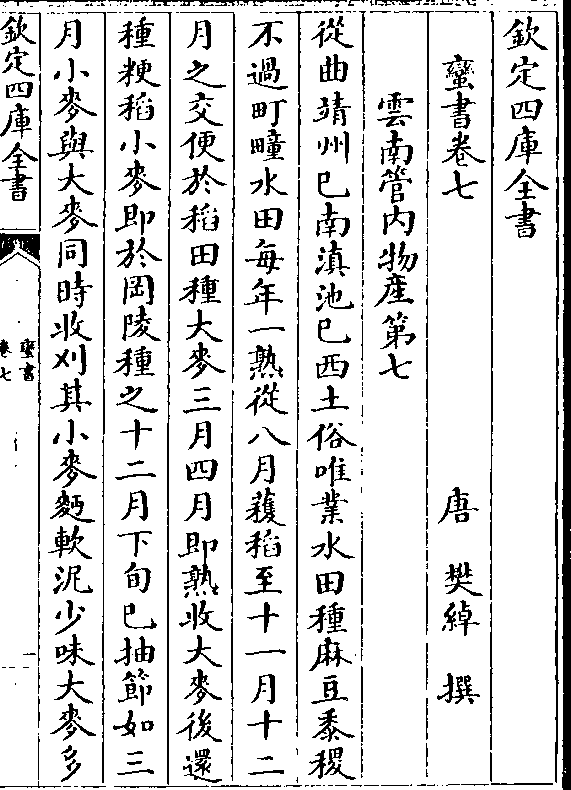 欽定四庫全書
蠻書卷七
唐 樊綽 撰
雲南管内物產第七
從曲靖州已南滇池已西土俗唯業水田種麻豆黍稷
不過町疃水田每年一熟從八月穫稻至十一月十二
月之交便於稻田種大麥三月四月即熟收大麥後還
種粳稻小麥即於岡陵種之十二月下旬已抽節如三
月小麥與大麥同時收刈其小麥麪軟泥少味大麥多
欽定四庫全書
蠻書
卷七
一